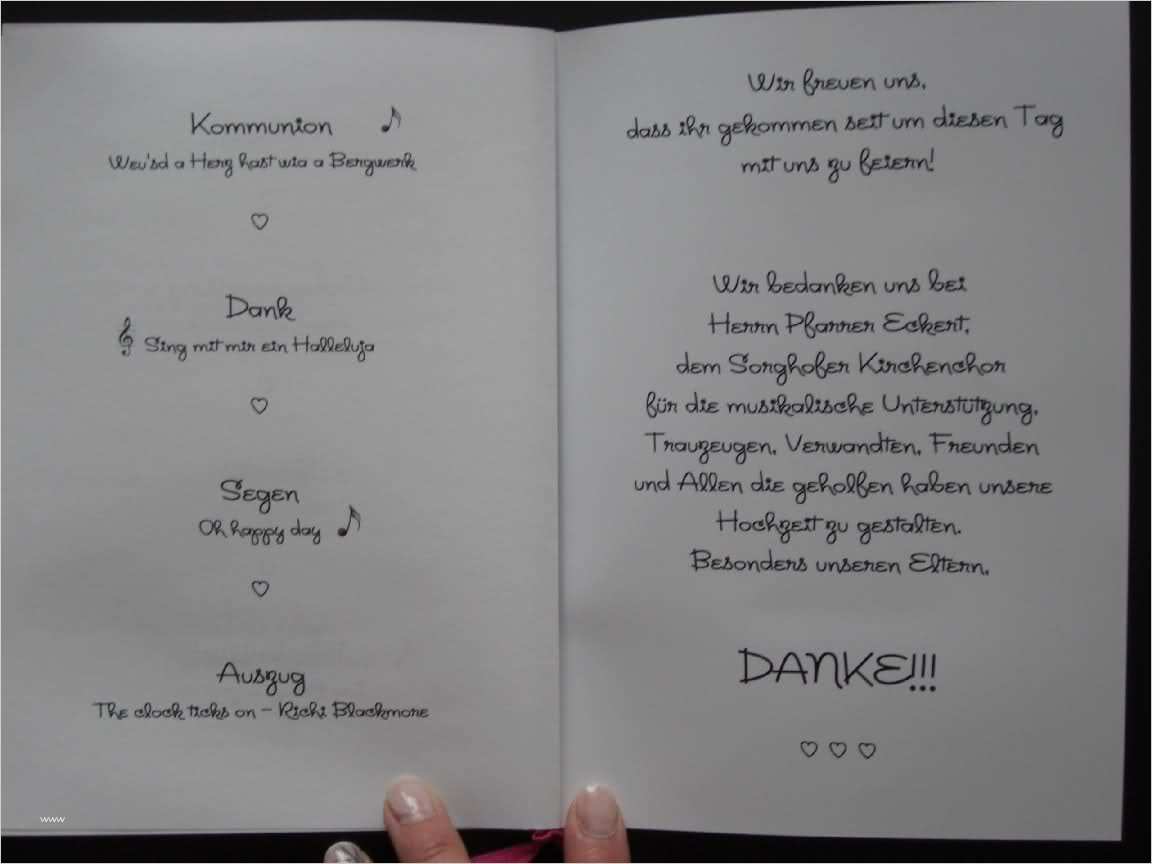 Kommunion
Weu'sd a Herz hast wia a Bergwerk
Dank
Sing mit mir ein Halleluja
Segen
Oh happy day
Auszug
The clock ticks on - Richi Blackmore
www
Wir freuen uns,
dass ihr gekommen seit um diesen Tag
mit uns zu feiern!
Wir bedanken uns bei
Herrn Pfarrer Eckert,
dem Sorghofer Kirchenchor
für die musikalische Unterstützung,
Trauzeugen, Verwandten, Freunden
und Allen die geholfen haben unsere
Hochzeit zu gestalten.
Besonders unseren Eltern.
DANKE!!!